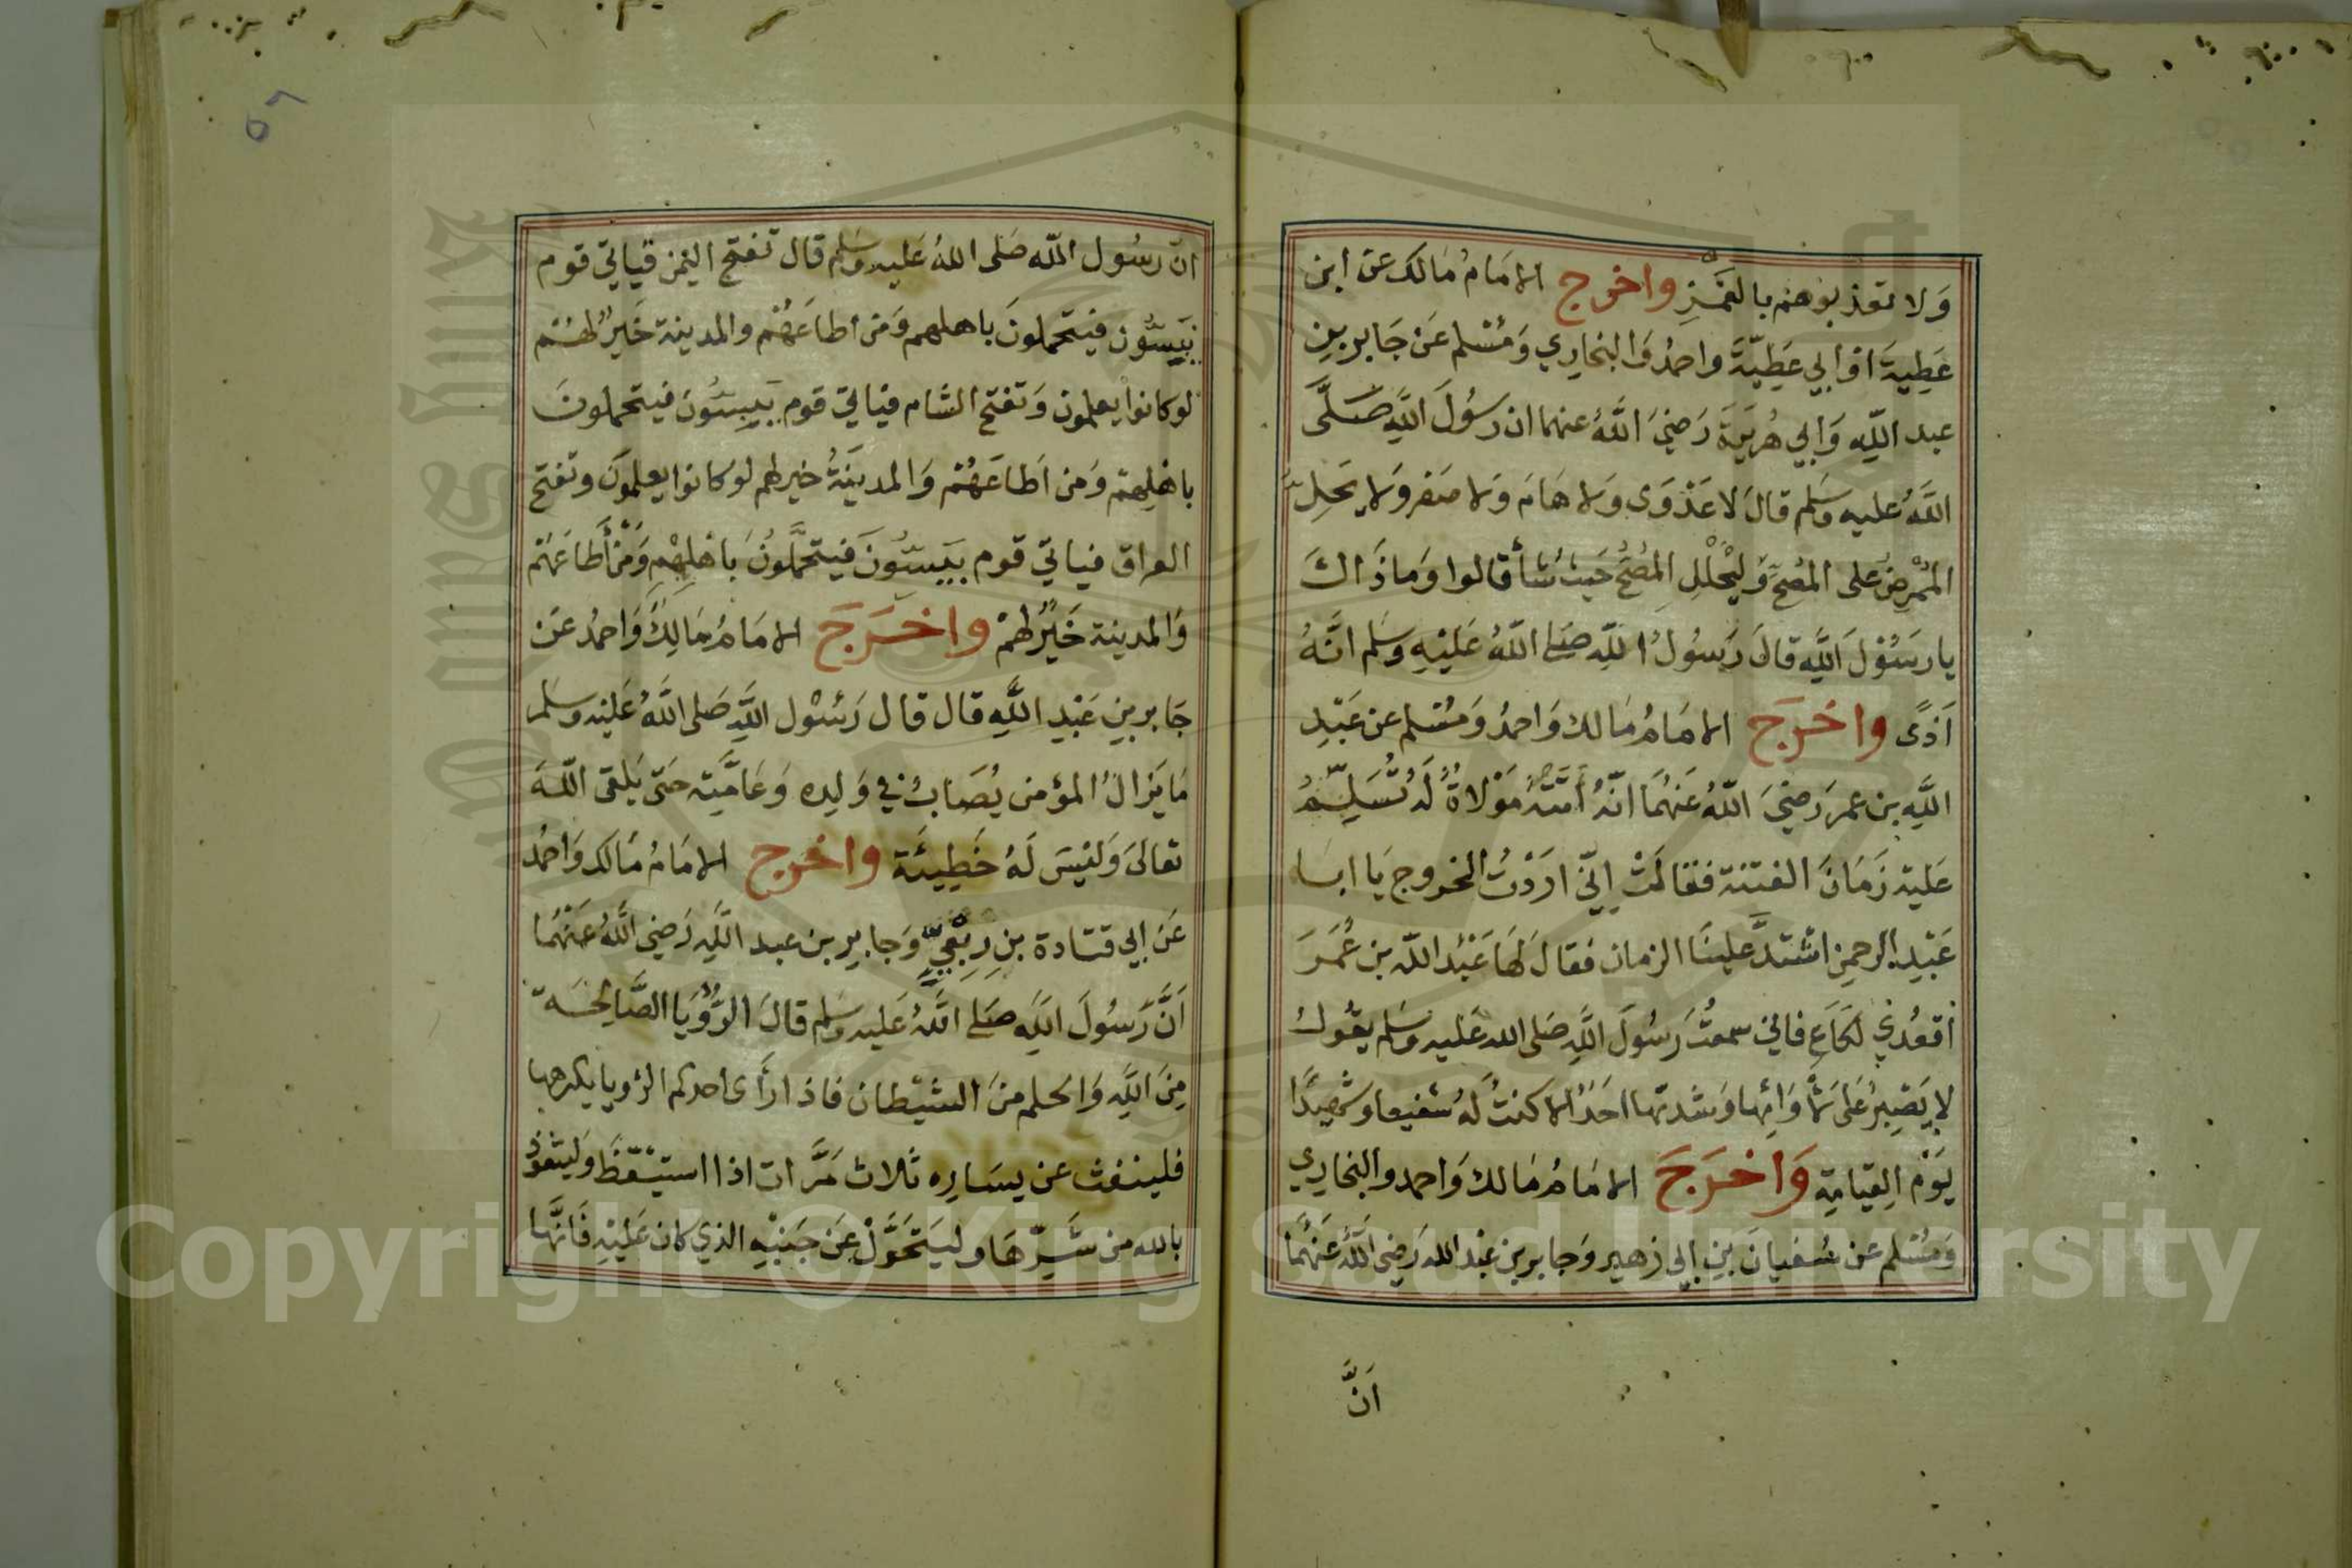 وَلا تعذبوهم بالغَمْزِ واخرج الامَامُ مَالك عن ابن
عَطِيةَ اوابي عَطِيّةَ واحمدُ وَالبخاري وَمُسْلم عَن جَابر بنِ
عبد اللّهِ وَابي هُرَيرَةَ رَضيَ اللَّهُ عنهما ان رسُولَ اللَّهِ صَلَّى
اللَّهُ عليه وسَلم قالَ لا عَدْوَى وَلا هَامَ وَلا صَفر وَلا يَحِلّ
المُمْرِضُ على المُصِحِّ وَليْحْلُلِ المُصِحُّ حَيثُ شأ قالوا وَما ذَاكَ
يا رسَوُلَ اللَّهِ قالَ رَسُولُ اللّهِ صَلى اللّهُ عَليْهِ وسَلم انَّهُ
اَذًى واخرَجَ الامَامُ مَالك وَاحمدُ وَمُسْلم عن عَبْدِ
اللَّهِ بن عمر رَضيَ اللّهُ عَنهُمَا انّهُ أتَتْهُ مَوْلاةٌ لَهُ تُسَلِّمُ
عَليهِ زَمَانَ الفتنة فقالَتْ إنِّي ارَدْتُ الخروج يَا ابَا
عَبْدِ الرحمنِ اشتدَّ علينَا الزمان فقالَ لهَا عَبْدُ اللّه بن عُمَرَ
أقعُدي لكَاعِ فاني سمعتُ رَسُولَ اللَّهِ صَلى الله عَليهِ وسَلم يقُولُ
لا يَصْبِرُ عَلى لأْوَائِها وَشدتها احَدٌ الا كنتُ لَهُ شفيعا وشهيدًا
يَوْم القيَامةِ وَاخرَجَ الامَامُ مَالك وَاحمد والبخاري
وَمُسْلم عن سُفيانَ بنِ ابي زهير وَجابر بن عَبْد الله رَضي اللَّهُ عَنهُمَا
اَنَّ
انّ رسُول اللّه صَلى اللهُ عَليه وسَلم قال تفتح اليَمن فياتي قوم
يَبِسُّون فيتحملونَ باهلهم وَمَن اطاعَهُمْ والمدينة خَيرٌ لهُمْ
لو كانوا يعلمون وَتفتح الشام فياتي قوم يَبِسُّونَ فيتحملونَ
باهْلِهمْ وَمَن اَطاعَهُمْ وَالمدينَةُ خير لهم لو كانوا يعلمونَ وتفتح
العراق فياتي قوم يَبِسُّونَ فيتحمَّلُونَ باهْلِهِمْ وَمَنْ أَطاعَهُمْ
وَالمدينة خَيْرٌ لهمْ واخرَجَ الامَامُ مَالِكٌ وَاحمدُ عَن
جَابر بنِ عَبْدِ اللَّهِ قال قال رَسُوْل اللَّهِ صَلى اللَّهُ عَليْهِ وسَلم
مَا يَزالُ المؤمن يُصَابُ في وَلدِه وَحَامَّتِه حَتى يَلقى اللّهَ
تعالىَ وَليْسَ لَهُ خَطِيئَة واخرج الامَامُ مَالك وَاحمدُ
عَن ابي قتادة بنِ رِبْعِيٍّ وَجابرِ بن عبد اللَّهِ رَضي اللَّهُ عَنْهُمَا
اَنَّ رَسُولَ اللَّهِ صَلى اللَّهُ عَليهِ وسَلم قالَ الرُّؤْيَا الصَّالحَة
مِنَ اللَّهِ وَالحلم منَ الشيْطان فاذا رَأى احدكم الرؤيا يكرهها
فلينفث عن يسَارِه ثلاث مَرَّات اذا استيْقظَ وَليتعَوّذ
بالله من شَرِّهَا وليَتَحَوَّلْ عَن جَنبِهِ الذي كان عَليْهِ فَانَّها
Copyright © King Saud University